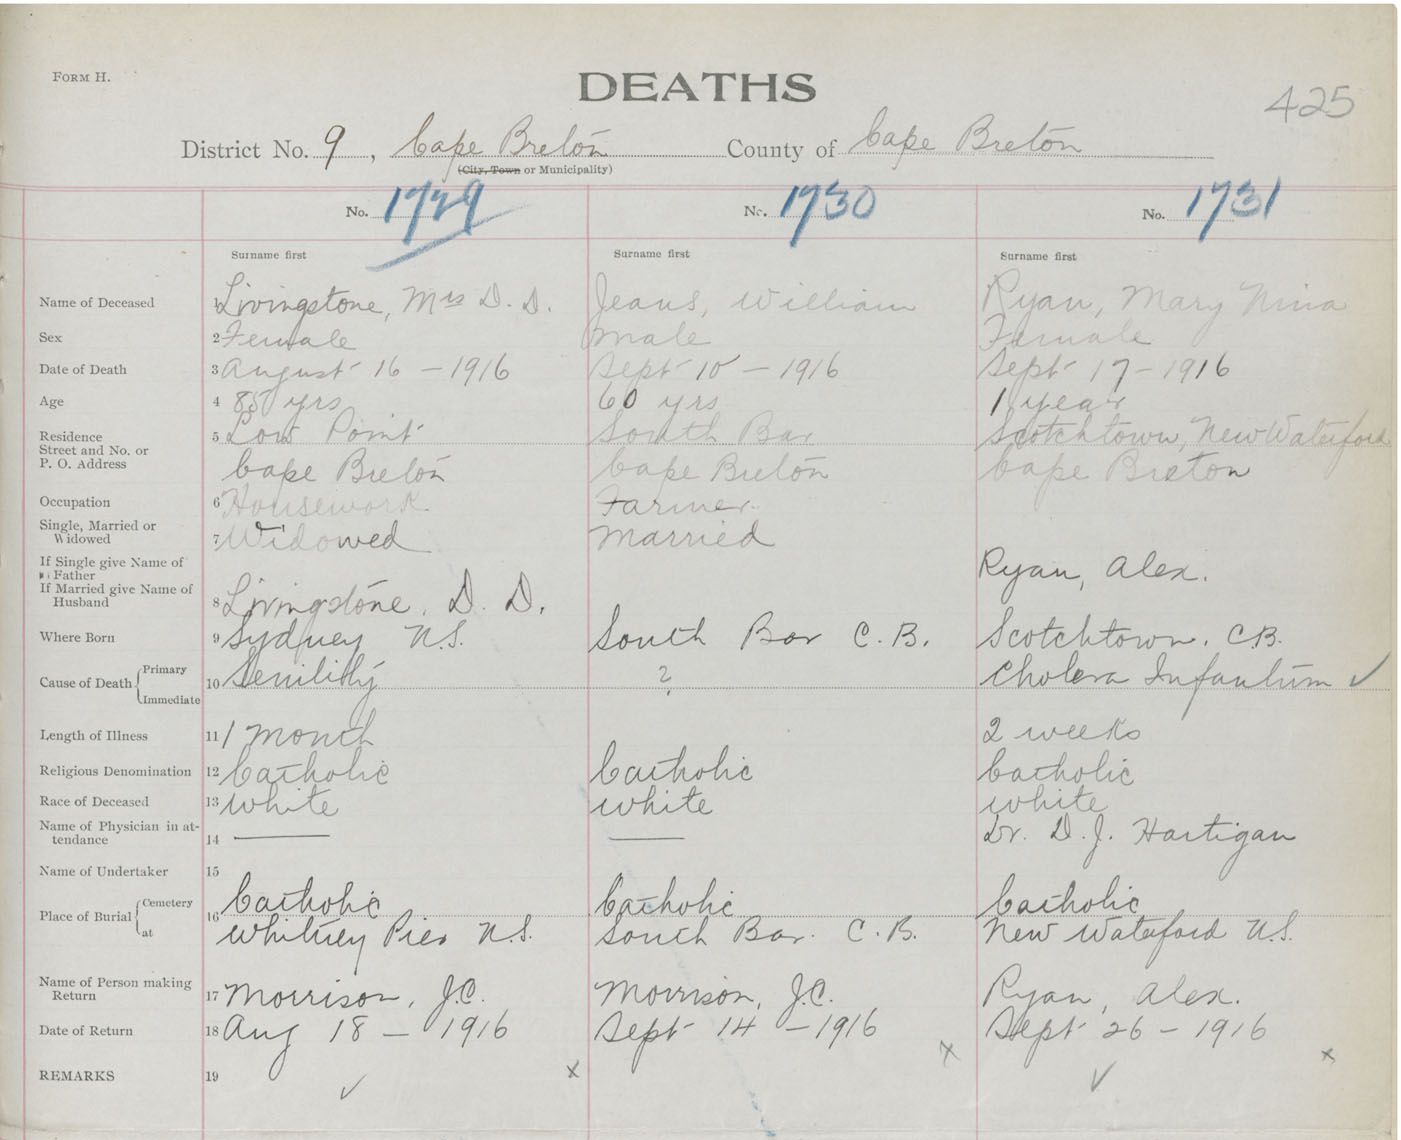 FORM H.
DEATHS
425
District No. 9, Cape Breton County of Cape Breton
(City, Town or Municipality)
No. 1729 No. 1730 No. 1731
Surname first Surname first Surname first
Name of Deceased Livingstone, Mrs D. D. Jeans, William Ryan, Mary Nina
Sex 2 Female male Female
Date of Death 3 August 16 - 1916 Sept 10 - 1916 Sept 17 - 1916
Age 4 85 yrs 60 yrs 1 year
Residence 5 Low Point South Bar Scotchtown, New Waterford
Street and No. or
P. O. Address Cape Breton Cape Breton Cape Breton
Occupation 6 Housework Farmer
Single, Married or
Widowed 7 Widowed Married
If Single give Name of
Father Ryan, Alex.
If Married give Name of
Husband 8 Livingstone, D. D.
Where Born 9 Sydney N.S. South Bar C.B. Scotchtown. C.B.
Cause of Death { Primary 10 Senility ? Cholera Infantum ✓
Immediate
Length of Illness 11 1 month 2 weeks
Religious Denomination 12 Catholic Catholic Catholic
Race of Deceased 13 white white white
Name of Physician in at-
tendance 14 — — Dr. D. J. Hartigan
Name of Undertaker 15
Place of Burial { Cemetery 16 Catholic Catholic Catholic
at Whitney Pier N.S. South Bar. C.B. New Waterford N.S.
Name of Person making
Return 17 Morrison, J.C. Morrison, J.C. Ryan, Alex.
Date of Return 18 Aug 18 - 1916 Sept 14 - 1916 Sept 26 - 1916
x x
REMARKS 19 ✓ x ✓